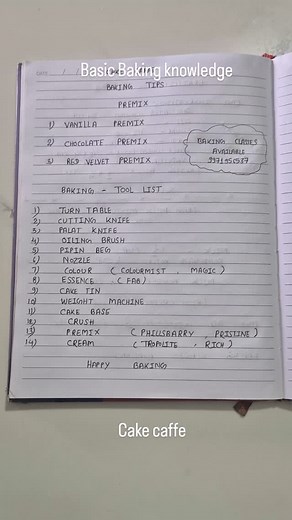 Basic Baking knowledge
BAKING TIPS
PREMIX
1) VANILLA PREMIX
2) CHOCOLATE PREMIX
3) RED VELVET PREMIX
BAKING CLASSES
AVAILABLE
BAKING - TOOL LIST
1) TURN TABLE
2) CUTTING KNIFE
3) PALAT KNIFE
4) OILING BRUSH
5) PIPIN BEG
6) NOZZLE
7) COLOUR (COLOURMIST, MAGIC)
8) ESSENCE (FAB)
9) CAKE TIN
10) WEIGHT MACHINE
11) CAKE BASE
12) CRUSH
13) PREMIX (PHILLSBARRY, PRISTINE)
14) CREAM (TROPOLITE, RICH)
HAPPY BAKING
Cake caffe